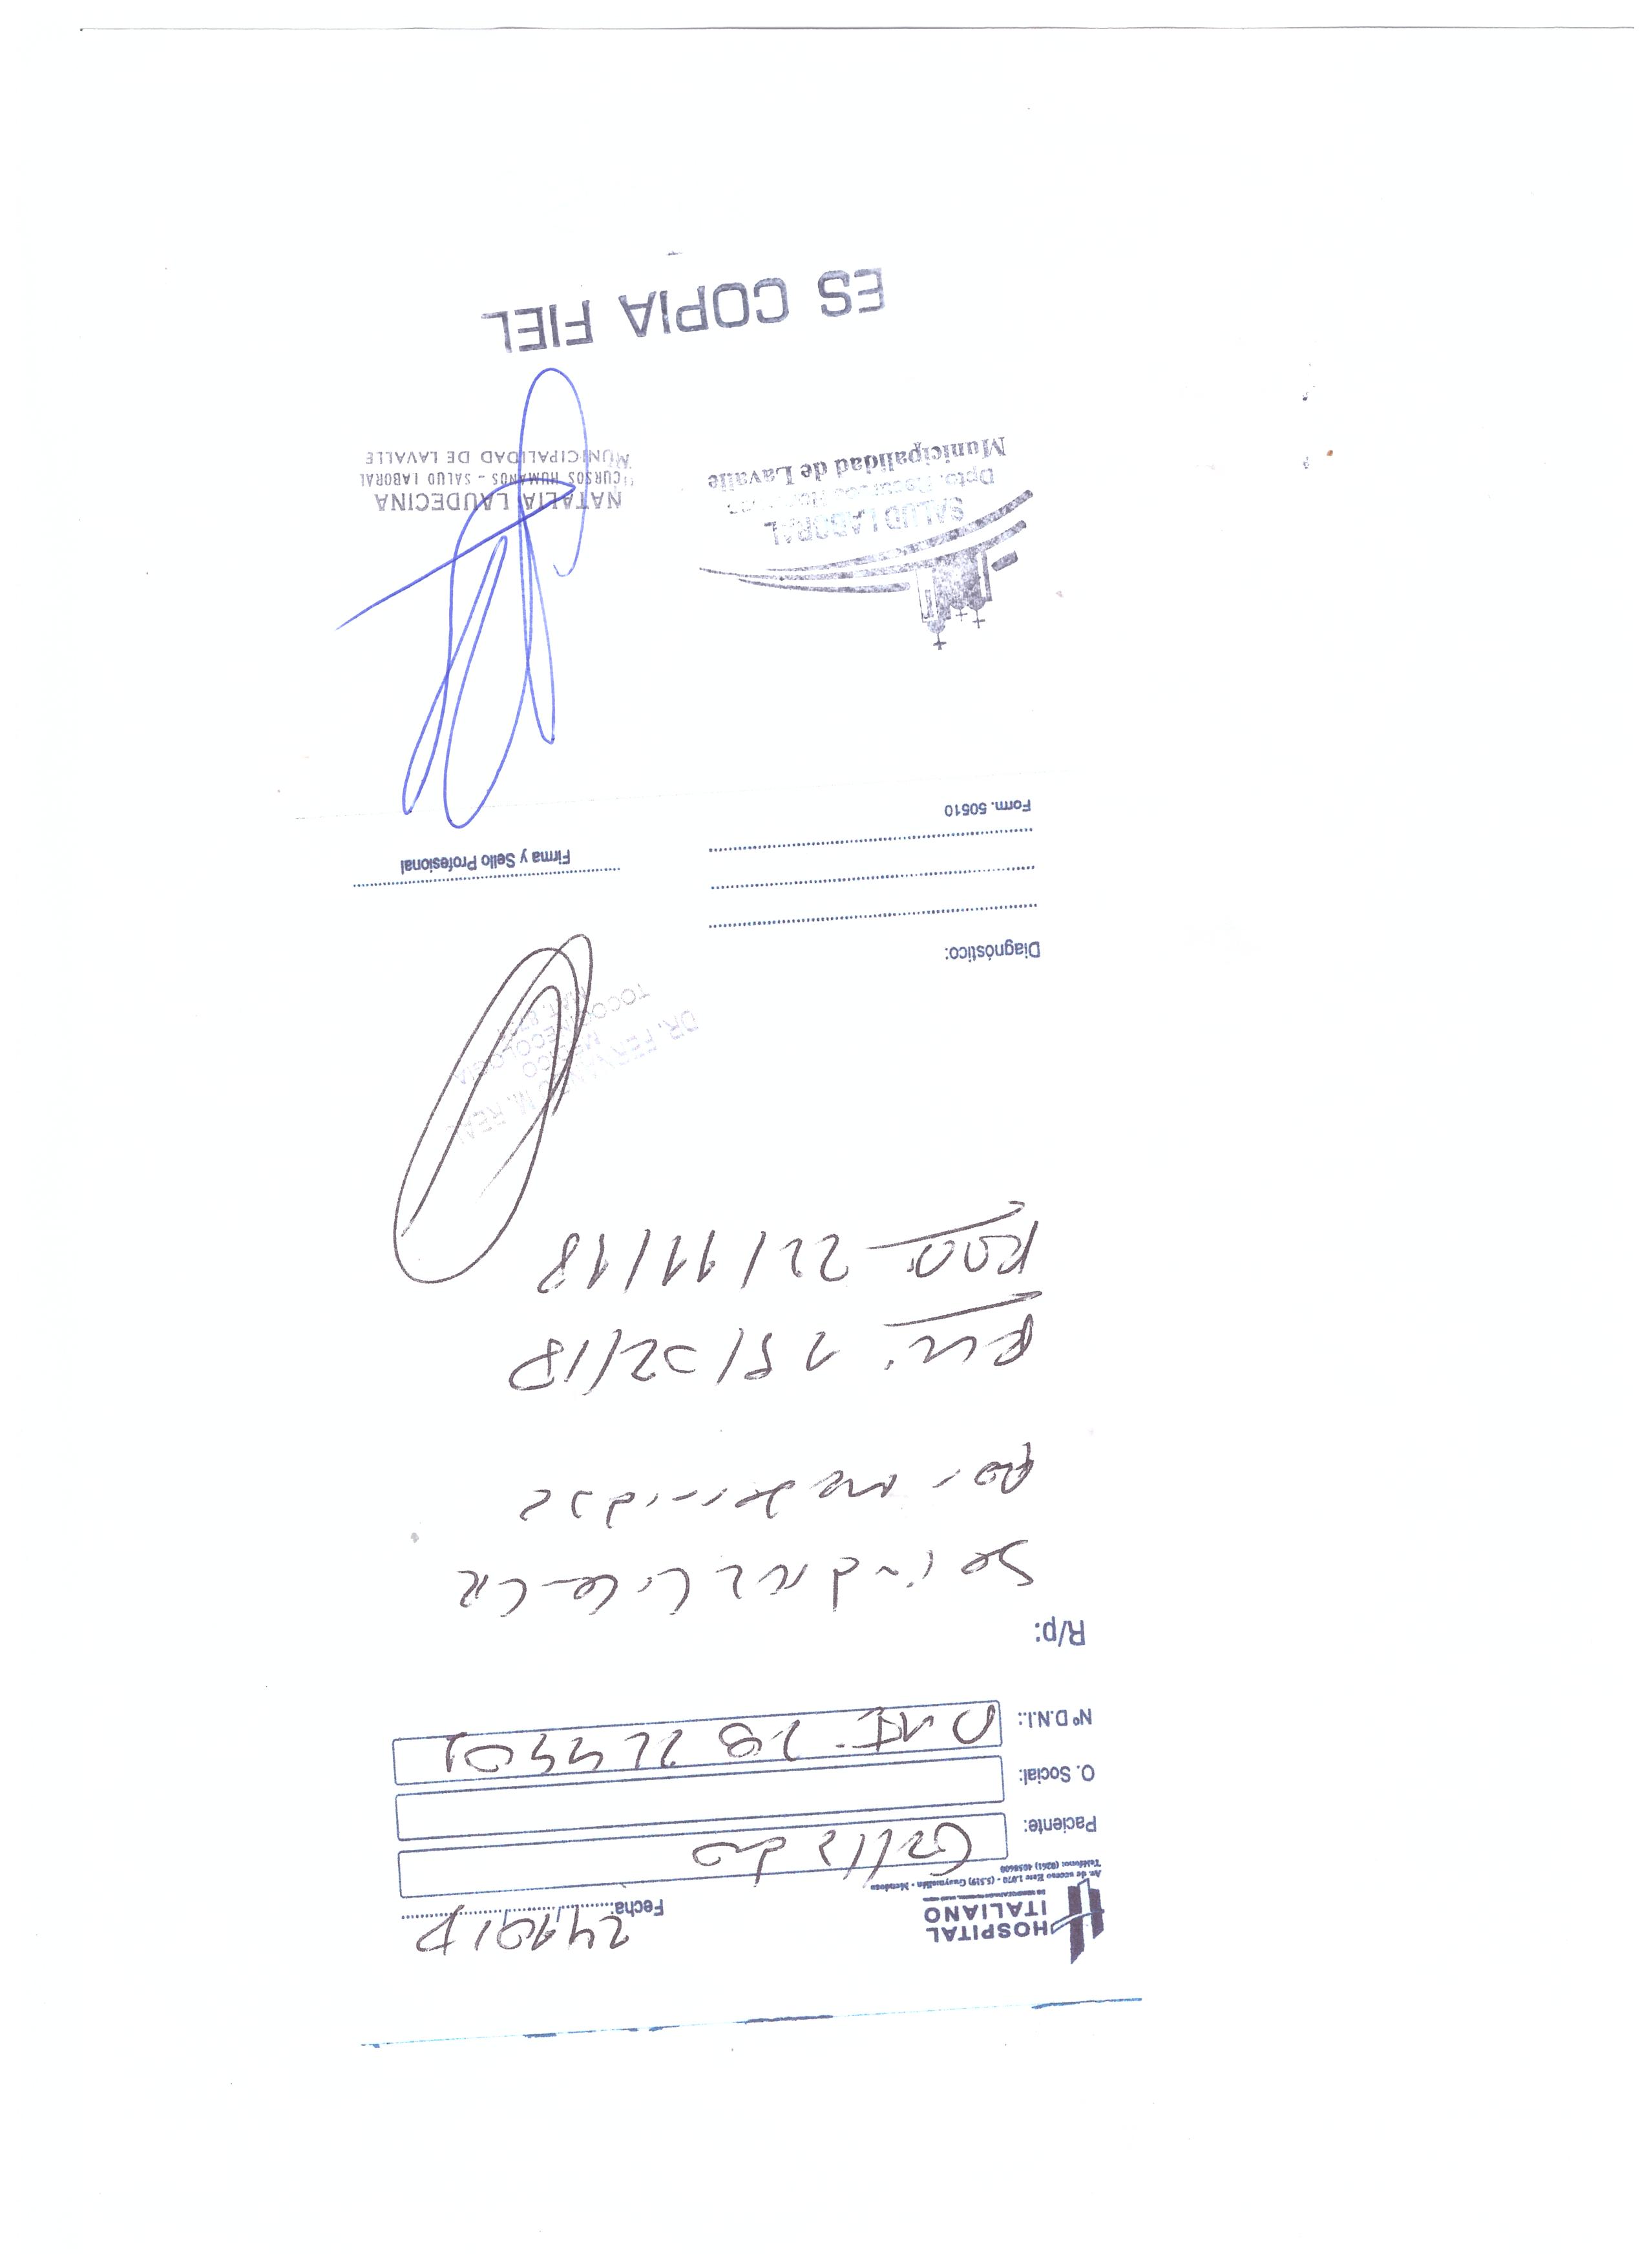 HOSPITAL
ITALIANO
Av. de acceso Este 1.070 - (5.519) Guaymallén - Mendoza
Teléfono: (0261) 4058600
Fecha:
Paciente: Collado
O. Social:
Nº D.N.I.: DNI:
R/p:
Se indica licencia
por maternidad
FUM:
FPP: 22/11/18
DR. FERNANDO M. REAL
MEDICO
TOCOGINECOLOGIA
Diagnóstico:
Firma y Sello Profesional
Form. 50510
SALUD LABORAL
Dpto. Recursos
Municipalidad de Lavalle
NATALIA LAUDECINA
CURSOS HUMANOS - SALUD LABORAL
MUNICIPALIDAD DE LAVALLE
ES COPIA FIEL